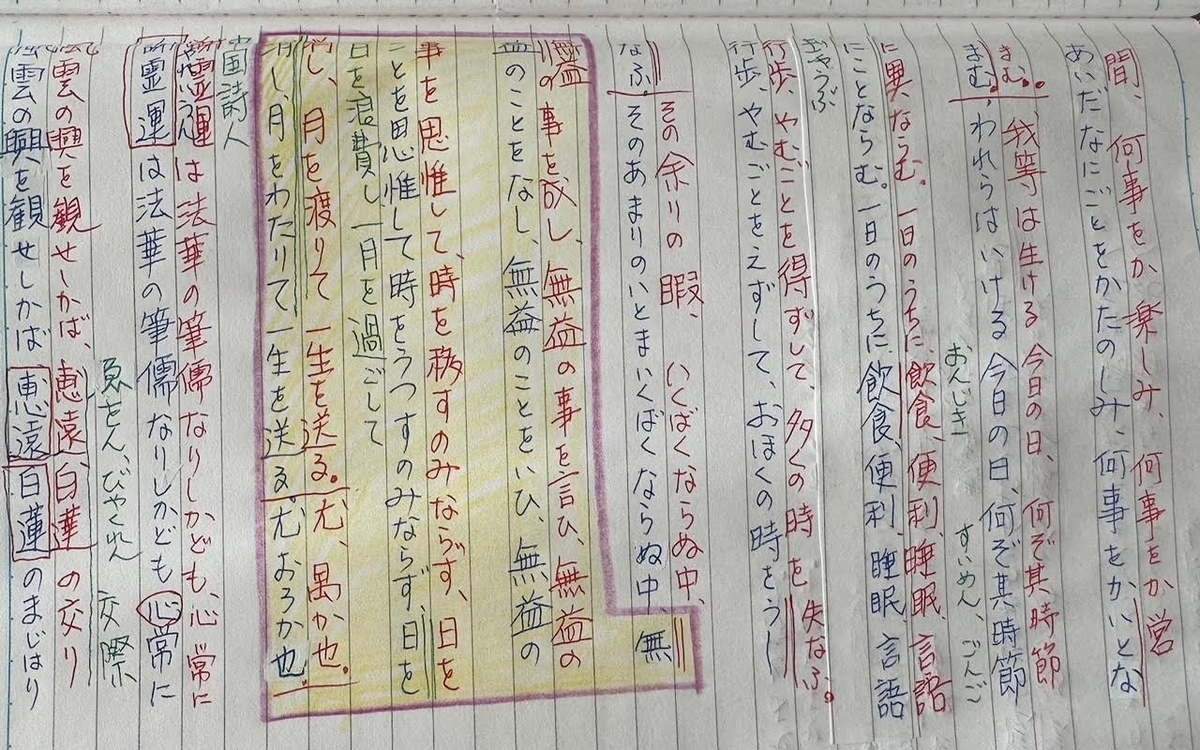 間、何事をか楽しみ、何事をか営
あいだなにごとをかたのしみ、何事をかいとな
まむ。我等は生ける今日の日、何ぞ其時節
まむ、われらはいける今日の日、何ぞ其時節
おんじき すいめん、ごんご
に異ならむ。一日のうちに、飲食、便利、睡眠、言語
にことならむ。一日のうちに、飲食、便利、睡眠、言語
ぎやうぶ
行歩、やむことを得ずして、多くの時を失なふ。
行歩、やむごとをえずして、おほくの時をうし
その余りの暇、いくばくならぬ中、
なふ。そのあまりのいとまいくばくならぬ中、無
益の事を成し、無益の事を言ひ、無益の
益のことをなし、無益のことをいひ、無益の
事を思惟して、時を移すのみならず、日を
ことを思惟して時をうつすのみならず、日を
日を浪費し一月を過ごして
消し、月を渡りて一生を送る。尤、愚か也。
消し、月をわたりて一生を送る。尤おろか也。
国詩人
霊運は法華の筆儒なりしかども、心常に
霊運は法華の筆儒なりしかども心常に
ゑをん、びやくれん 交際
雲の興を観せしかば、恵遠、白蓮の交り
雲の興を観せしかば恵遠白蓮のまじはり